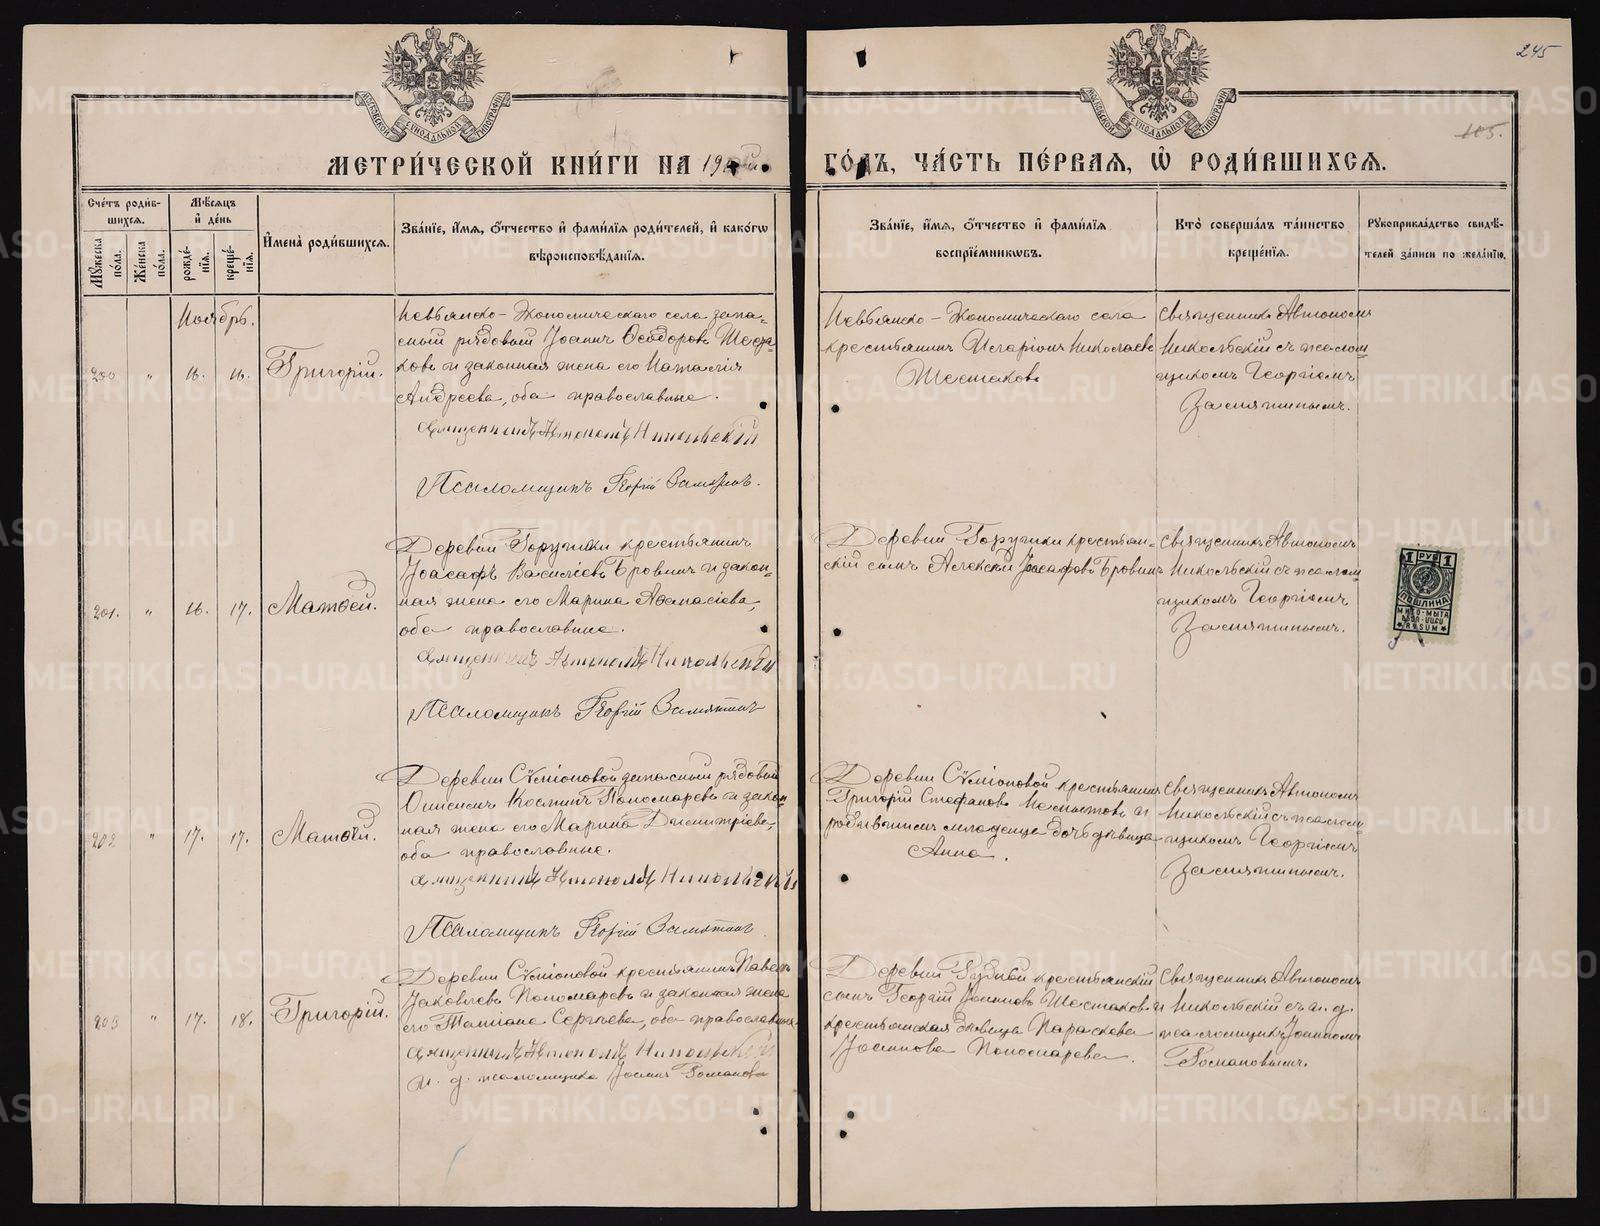 245
115.
МОСКОВСКОЙ СѴНОДАЛЬНОЙ ТИПОГРАФІИ
МОСКОВСКОЙ СѴНОДАЛЬНОЙ ТИПОГРАФІИ
МЕТРИ́ЧЕСКОЙ КНИ́ГИ НА 19
ГО́ДЪ, ЧА́СТЬ ПЕ́РВАЯ, Ѡ РОДИ́ВШИХСЯ.
Сче́тъ роди́в-
шихся.
Мѣ́сяцъ
и де́нь
Мꙋжеска по́ла.
Же́нска по́ла.
рожде́-
нїя.
креще́-
нїя.
Имена̀ роди́вшихся.
Зва́нїе, и́мя, о́тчество и фами́лїя роди́телей, и како́гѡ
вѣроисповѣ́данїя.
Зва́нїе, и́мя, о́тчество и фами́лїя
воспрїе́мникѡвъ.
Кто̀ соверша́лъ та́инство
креще́нїя.
Рꙋкоприкла́дство свидѣ́-
телей за́писи по жела́нїю.
Ноябрь.
200 " 16. 16. Григорій.
Невьянско-Экономическаго села запа-
сный рядовый Іоаннъ Ѳеодоровъ Шеста-
ковъ и законная жена его Наталія
Андреева, оба православные.
Священникъ Автономъ Никольскій
Псаломщикъ Георгій Замятинъ.
Невьянско-Экономическаго села
крестьянинъ Иларіонъ Николаевъ
Шестаковъ
Священникъ Автономъ
Никольскій съ псалом-
щикомъ Георгіемъ
Замятинымъ.
201. " 16. 17. Матѳей.
Деревни Горушки крестьянинъ
Іоасафъ Василіевъ Бровинъ и закон-
ная жена его Марина Аѳанасіева,
оба православные.
Священникъ Автономъ Никольскій
Псаломщикъ Георгій Замятинъ
Деревни Горушки крестьян-
скій сынъ Алексѣй Іоасафовъ Бровинъ
Священникъ Автономъ
Никольскій съ псалом-
щикомъ Георгіемъ
Замятинымъ.
1 РУБ 1
ПОШЛИНА
МИТО-МЫТА
RÜSUM
202 " 17. 17. Матѳей.
Деревни Сѵміоновой запасный рядовый
Косминъ Пономаревъ и закон-
ная жена его Марина Димитріева,
оба православные.
Священникъ Автономъ Никольскій
Псаломщикъ Георгій Замятинъ
Деревни Сѵміоновой крестьянинъ
Григорій Стефановъ и
дѣвица
Анна.
Священникъ Автономъ
Никольскій съ псалом-
щикомъ Георгіемъ
Замятинымъ.
203 " 17. 18. Григорій.
Деревни Сѵміоновой крестьянинъ Павелъ
Іаковлевъ Пономаревъ и законная жена
его Татіана Сергѣева, оба православные.
Священникъ Автономъ Никольскій
и. д. псаломщика Іоаннъ Романовъ
Деревни крестьянскій
сынъ Георгій Іоанновъ Шестаковъ и
крестьянская дѣвица Параскева
Іоаннова Пономарева.
Священникъ Автономъ
Никольскій съ и. д.
псаломщика Іоанномъ
Романовымъ.
METRIKI.GASO-URAL.RU